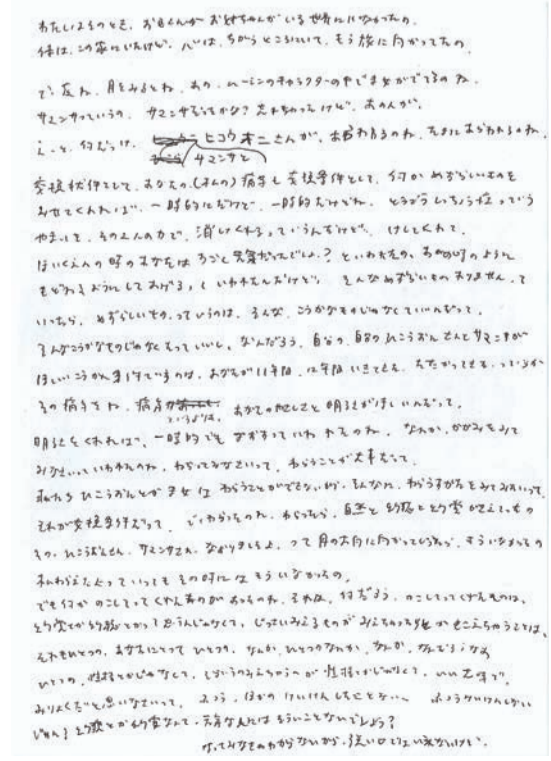 わたしはそのとき、お母さんがお姉ちゃんがいる世界にいなかったの。
体は、この家にいたけど、心は、ちがうところにいて、もう旅に向かってたの
で、夜ね、月をみるとね、あの、ムーミンのキャラクターの中で ま女がでてるのね、
サマンサっていうの、サマンサだったかな?忘れちゃったけど、あの人が、
えーと、何だっけ、ヒコウオニさんが、あらわれるのね、たまにあらわれるのね、
サマンサと
交換状件として、あなたの、(子んの)病気と交換条件として、何かめずらしいものを
みせてくれれば、一時的にだけど、一時的だけどね、とうごうしっちょう症っていう
やまいを、その2人の力で、消してくれるっていうんだけど、けしてくれて、
ほいくえんの時のあなたはすごく笑顔だったでしょ?といわれたの、あの時のように
もどれるようにしてあげる、といわれたんだけど、そんなめずらいものありません、て
いったら、めずらしいもの、っていうのは、そんな、こうかなものじゃなくていいんだって、
そんなこうかなものじゃなくたっていいし、なんだろう、自分の、自分のひこうおにさんとサマンサが
ほしいこうかん条件っていうのは、あなたが11年間、12年間いきてきた、たたかってきた、っていうか
その病気をね、病気
というよりは、あなたの楽しさと明るさがほしいんだって、
明るさをくれれば、一時的でもなおすっていわれたのね、なんか、かがみをみて
みなさいっていわれたのね、わらってみなさいって、わらうことが大事だって、
私たちひこうおにとかま女はわらうことができないから、そんなに、わらうすがたをみてみたいって、
それが交換条件だって、で、わらったのね、わらったら、自然と幻聴と幻覚が消えてったの
その、ひこうおにさん、サマンサさん、なおりましたよ、って月の方向に向かっていったら、もういなかったの
私わらえたよっていってもその時にはもういなかったの、
でも何かのこしてってくれたものがあったのね、それは、何だろう、のこしてってくれたものは、
幻覚とか幻聴とかって思うんじゃなくて、じっさいみえるものがみえちゃったりとかきこえちゃうことは、
それもひとつの、あなたにとってひとつの、なんか、ひとつのなんか、なんか、なんだろうなあ
ひとつの、性格とかじゃなくて、そういうのみえちゃう人が性格とかじゃなくて、いい意味で、
みりょくだと思いなさいって、ふつう、ほかのけいけんしたことない人 ふつうけいけんしない
じゃん?幻聴とか幻覚なんて、元気な人にはそういうことないでしょう?
なってみなきゃわからないから、強い口じゃ言えないけど、